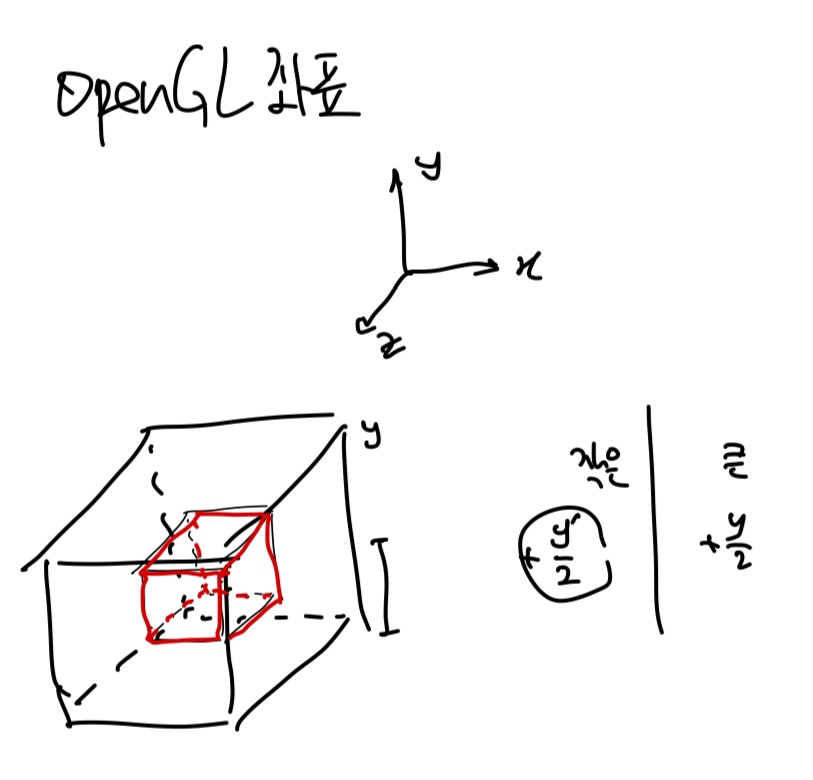 OpenGL 좌표
y
x
z
y
작은 큰
+ y'/2 + y/2